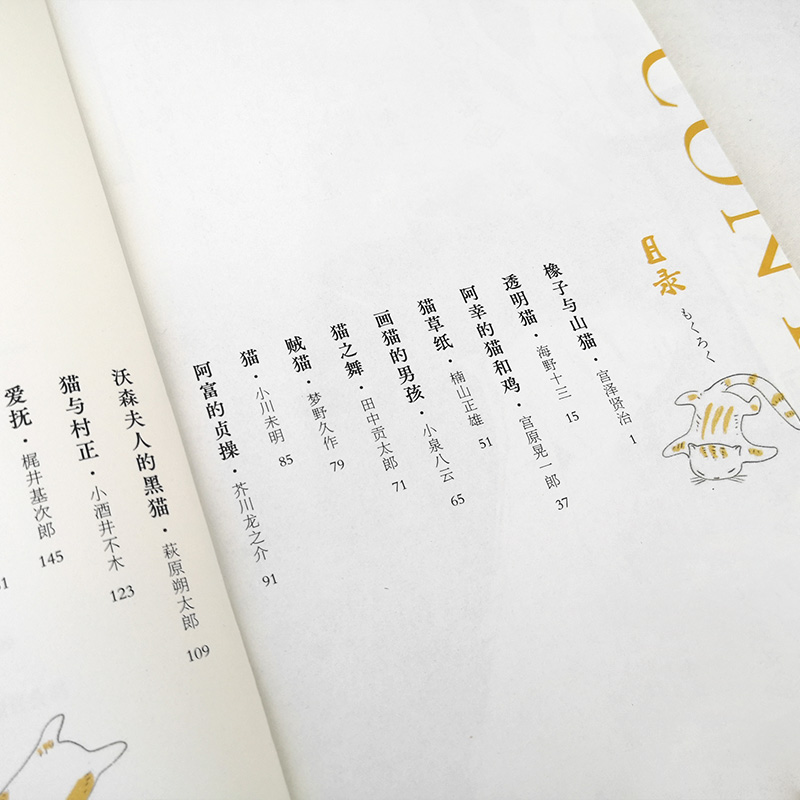 CON
目录
もくろく
橡子与山猫·宫泽贤治 1
透明猫·海野十三 15
阿幸的猫和鸡·宫原晃一郎 37
猫草纸·楠山正雄 51
画猫的男孩·小泉八云 65
猫之舞·田中贡太郎 71
贼猫·梦野久作 79
猫·小川未明 85
阿富的贞操·芥川龙之介 91
沃森夫人的黑猫·萩原朔太郎 109
猫与村正·小酒井不木 123
爱抚·梶井基次郎 145